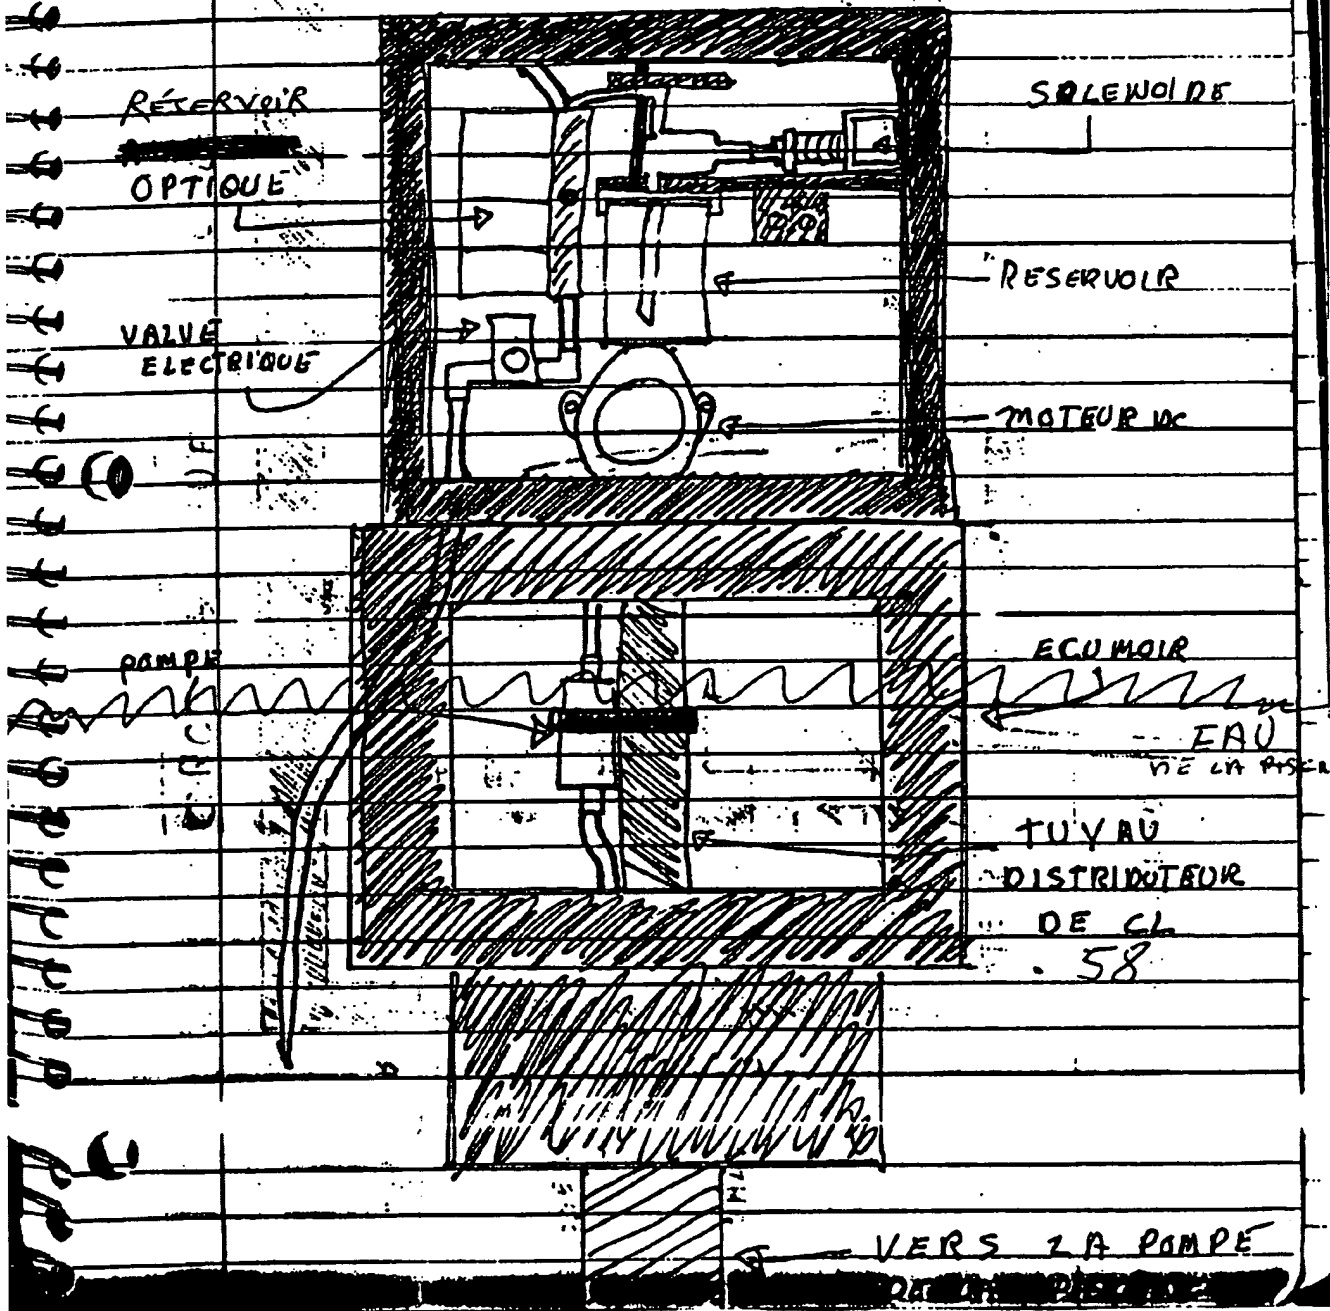 RÉSERVOIR
OPTIQUE
SOLENOIDE
RESERVOIR
VALVE
ELECTRIQUE
MOTEUR DC
POMPE
ECUMOIR
EAU
DE LA
TUYAU
DISTRIBUTEUR
DE CL
58
VERS LA POMPE